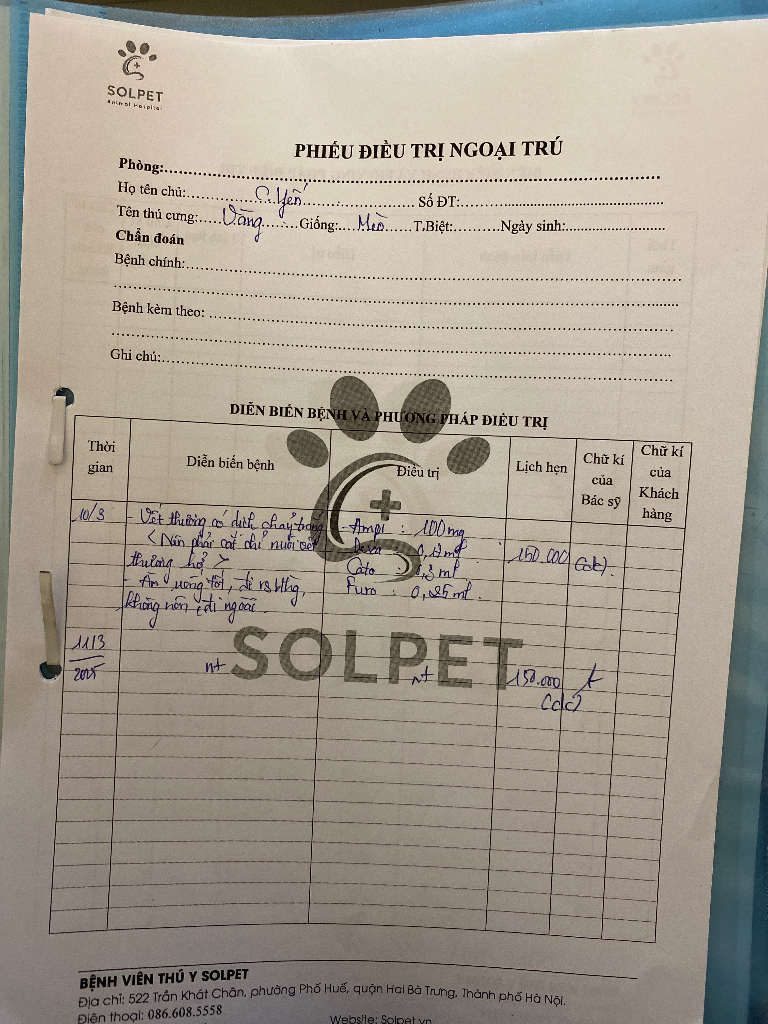 SOLPET
Animal Hospital
PHIẾU ĐIỀU TRỊ NGOẠI TRÚ
Phòng:
Họ tên chủ: C. Yến Số ĐT:
Tên thú cưng: Vàng Giống: Mèo T.Biệt: Ngày sinh:
Chẩn đoán
Bệnh chính:
Bệnh kèm theo:
Ghi chú:
DIỄN BIẾN BỆNH VÀ PHƯƠNG PHÁP ĐIỀU TRỊ
Thời gian Diễn biến bệnh Điều trị Lịch hẹn Chữ kí của Bác sỹ Chữ kí của Khách hàng
10/3 - Vết thương có dịch chảy trong - Ampi : 100mg
< Nên phải cắt chỉ nuôi vết Dexa : ml 150.000 (cdc)
thương hở > Cato : ml
- Ăn uống tốt, đi vs bthg, Furo : 0,25 ml.
không nôn, đi ngoài
11/3
2025 nt nt 150.000
(cdc)
SOLPET
BỆNH VIÊN THÚ Y SOLPET
Địa chỉ: 522 Trần Khát Chân, phường Phố Huế, quận Hai Bà Trưng, Thành phố Hà Nội.
Điện thoại: 086.608.5558 Website: Solpet.vn